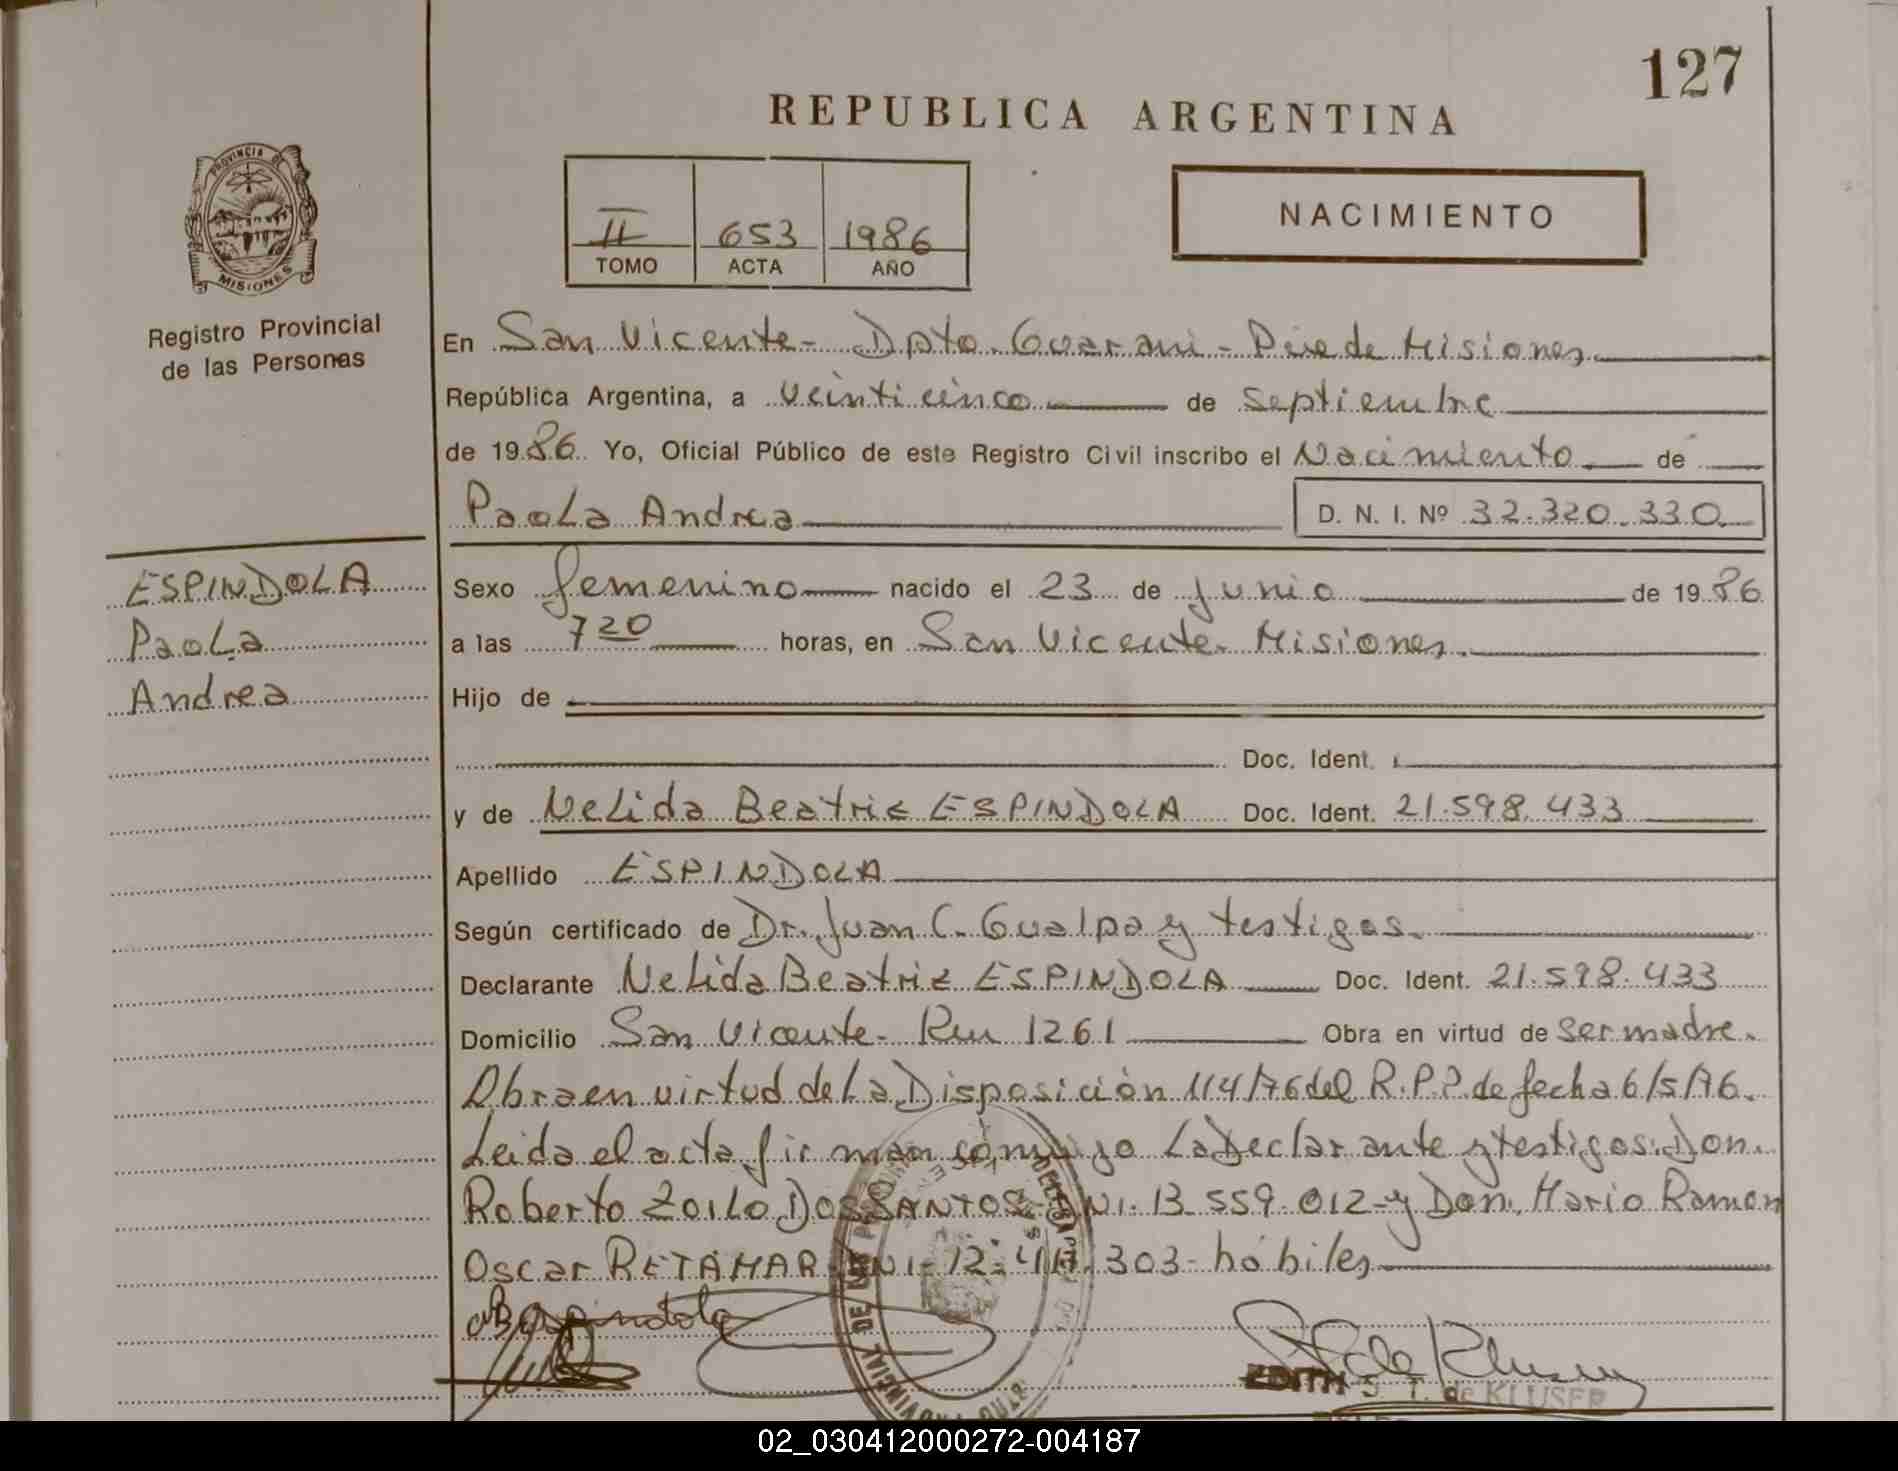 127
REPUBLICA ARGENTINA
PROVINCIA DE
MISIONES
II 653 1986
TOMO ACTA AÑO
NACIMIENTO
Registro Provincial
de las Personas
En San Vicente - Dpto. Guarani - Pcia de Misiones
República Argentina, a Veinticinco de Septiembre
de 1986 Yo, Oficial Público de este Registro Civil inscribo el Nacimiento de
Paola Andrea D. N. I. Nº 32.320.330
ESPINDOLA
Paola
Andrea
Sexo femenino nacido el 23 de junio de 1986
a las 7 20 horas, en San Vicente - Misiones.
Hijo de
Doc. Ident.
y de Nelida Beatriz ESPINDOLA Doc. Ident. 21.598.433
Apellido ESPINDOLA
Según certificado de Dr. Juan C. Gualpa y testigos.
Declarante Nelida Beatriz ESPINDOLA Doc. Ident. 21.598.433
Domicilio San Vicente - Km 1261 Obra en virtud de ser madre.
Obra en virtud de La Disposición 114/76 del R.P.P. de fecha 6/5/76.
Leida el acta firman conmigo La Declarante y testigos: Don.
Roberto Zoilo DOS SANTOS - DNI. 13.559.012 - y Don. Mario Ramon
Oscar RETAMAR - DNI - 12. 303 - hábiles
Espindola
EDITH S. T. de KLUSER
02_030412000272-004187